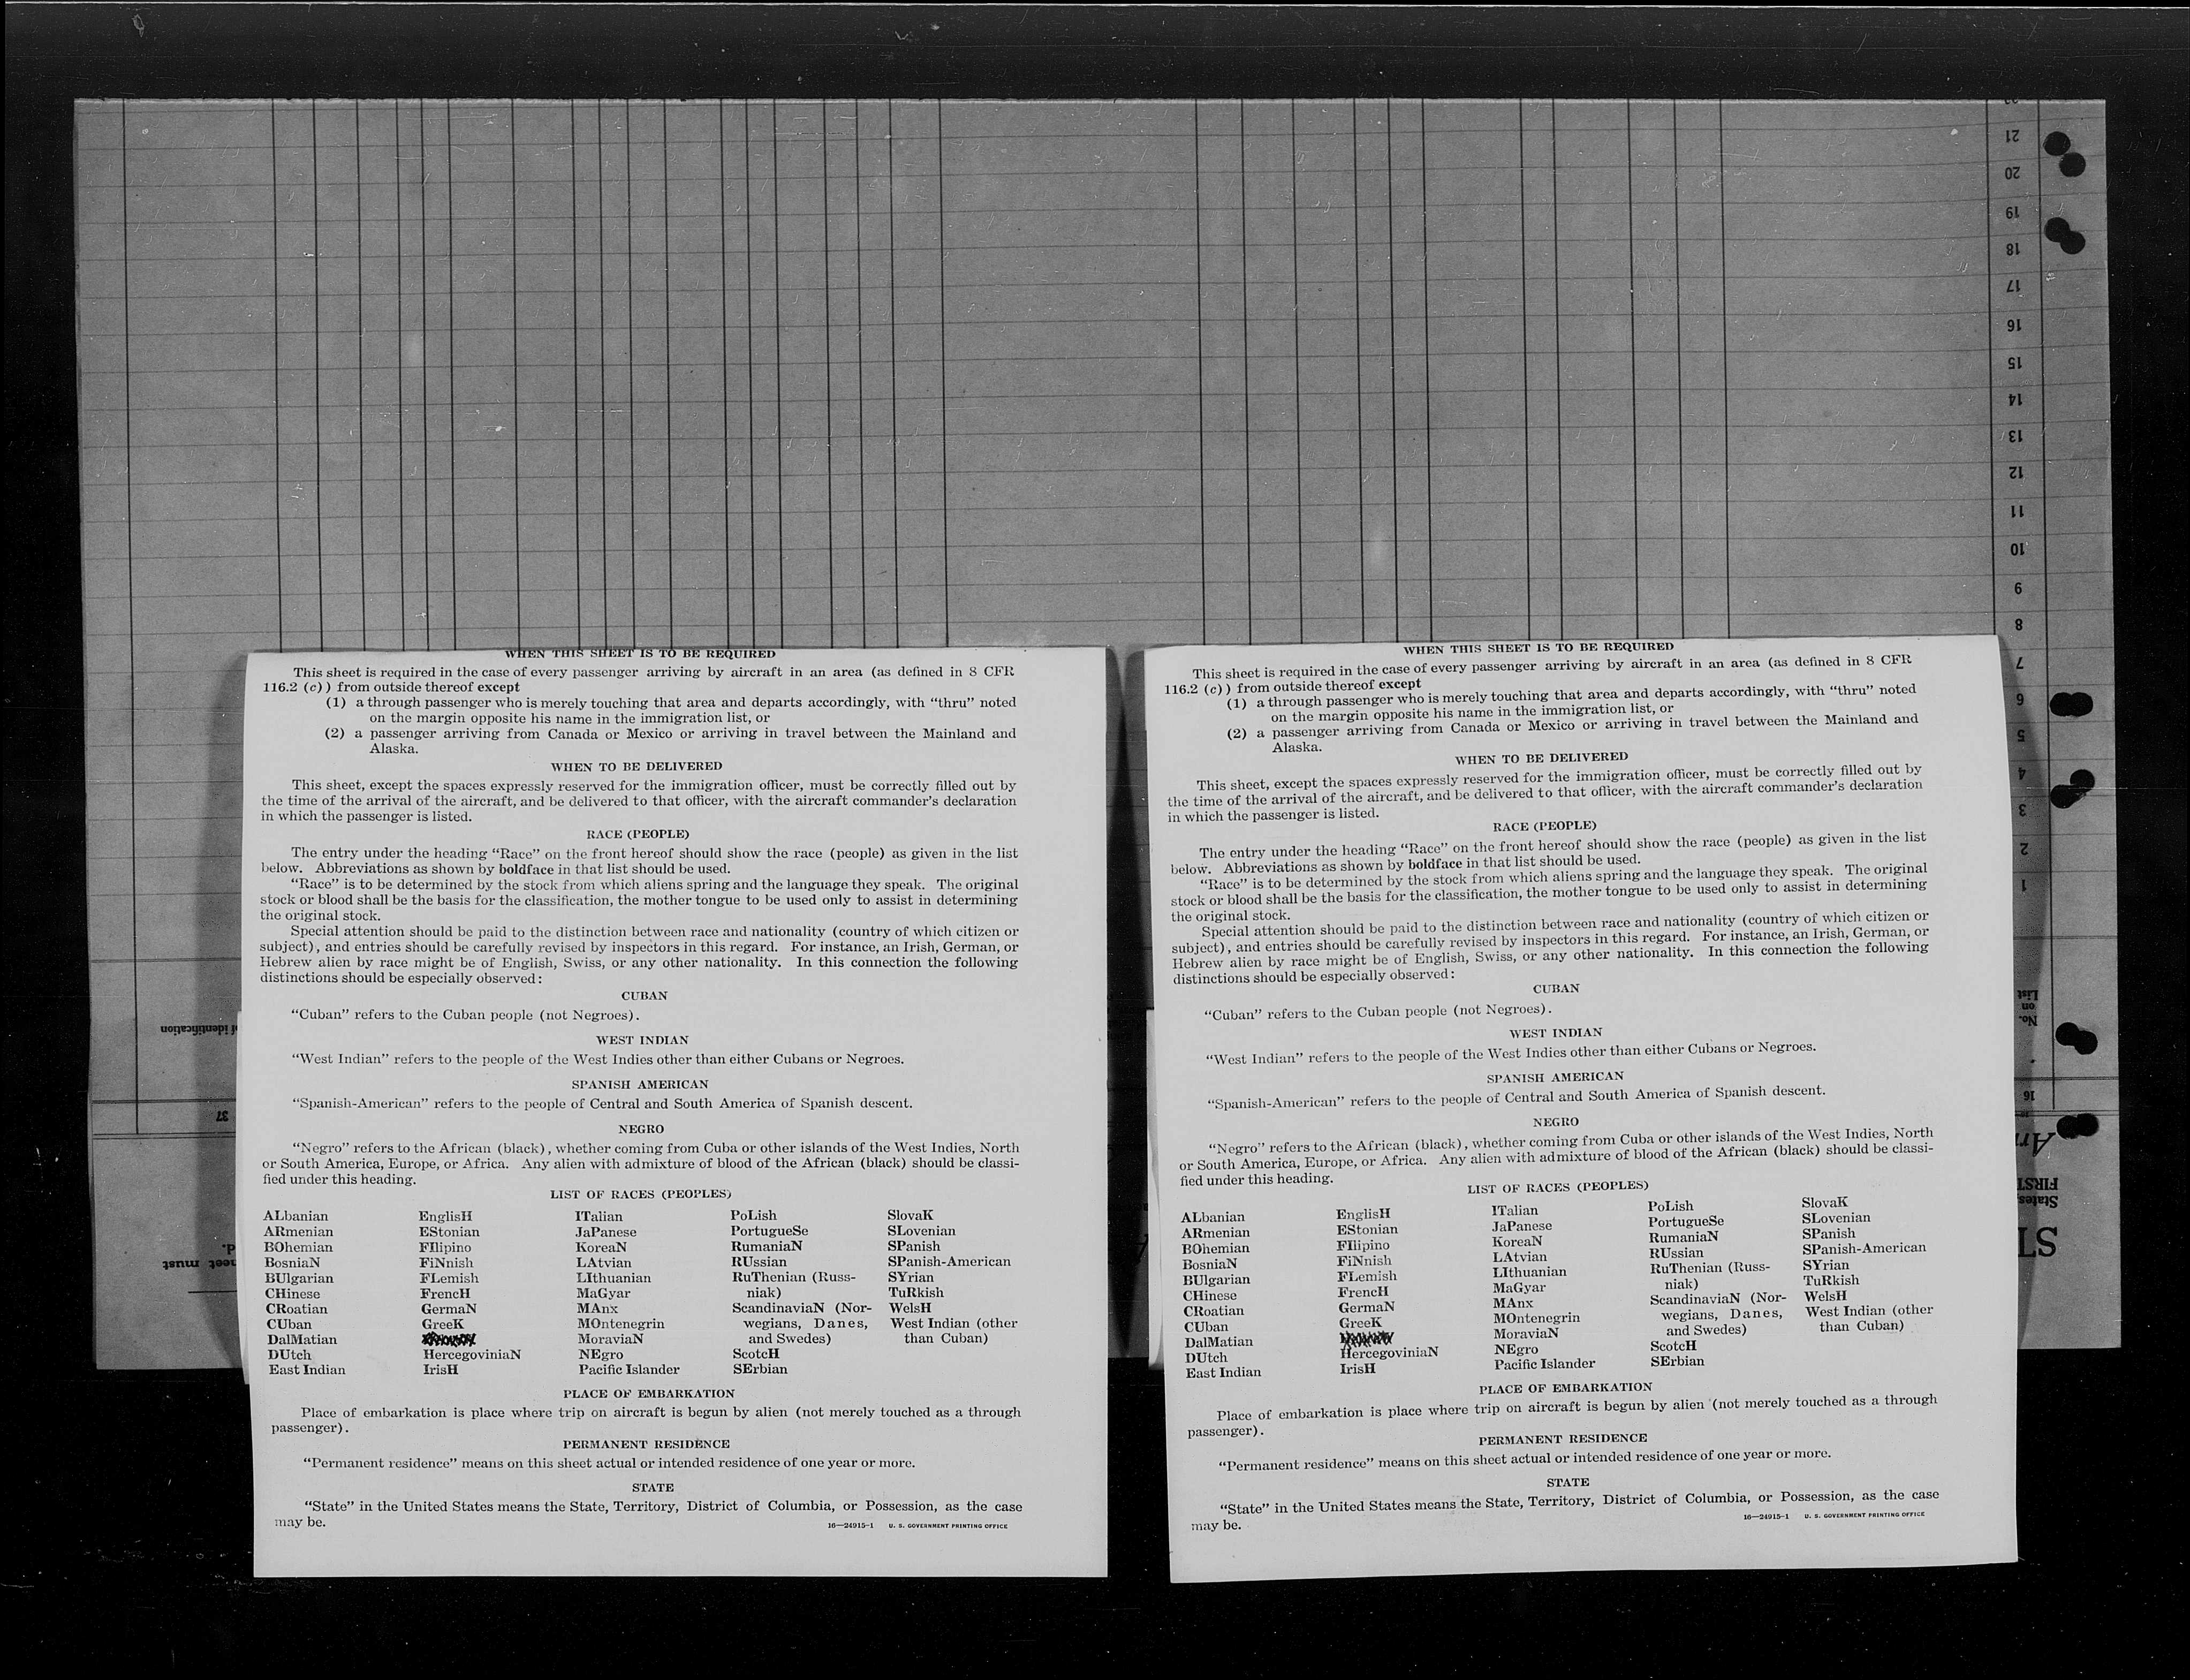 WHEN THIS SHEET IS TO BE REQUIRED
This sheet is required in the case of every passenger arriving by aircraft in an area (as defined in 8 CFR
116.2 (c)) from outside thereof except
(1) a through passenger who is merely touching that area and departs accordingly, with “thru” noted
on the margin opposite his name in the immigration list, or
(2) a passenger arriving from Canada or Mexico or arriving in travel between the Mainland and
Alaska.
WHEN TO BE DELIVERED
This sheet, except the spaces expressly reserved for the immigration officer, must be correctly filled out by
the time of the arrival of the aircraft, and be delivered to that officer, with the aircraft commander’s declaration
in which the passenger is listed.
RACE (PEOPLE)
The entry under the heading “Race” on the front hereof should show the race (people) as given in the list
below. Abbreviations as shown by boldface in that list should be used.
“Race” is to be determined by the stock from which aliens spring and the language they speak. The original
stock or blood shall be the basis for the classification, the mother tongue to be used only to assist in determining
the original stock.
Special attention should be paid to the distinction between race and nationality (country of which citizen or
subject), and entries should be carefully revised by inspectors in this regard. For instance, an Irish, German, or
Hebrew alien by race might be of English, Swiss, or any other nationality. In this connection the following
distinctions should be especially observed:
CUBAN
“Cuban” refers to the Cuban people (not Negroes).
WEST INDIAN
“West Indian” refers to the people of the West Indies other than either Cubans or Negroes.
SPANISH AMERICAN
“Spanish-American” refers to the people of Central and South America of Spanish descent.
NEGRO
“Negro” refers to the African (black), whether coming from Cuba or other islands of the West Indies, North
or South America, Europe, or Africa. Any alien with admixture of blood of the African (black) should be classi-
fied under this heading.
LIST OF RACES (PEOPLES)
ALbanian
ARmenian
BOhemian
BosniaN
BUlgarian
CHinese
CRoatian
CUban
DalMatian
DUtch
East Indian
EnglisH
EStonian
FIlipino
FiNnish
FLemish
FrencH
GermaN
GreeK
HercegoviniaN
IrisH
ITalian
JaPanese
KoreaN
LAtvian
LIthuanian
MaGyar
MAnx
MOntenegrin
MoraviaN
NEgro
Pacific Islander
PoLish
PortugueSe
RumaniaN
RUssian
RuThenian (Russ-
niak)
ScandinaviaN (Nor-
wegians, Danes,
and Swedes)
ScotcH
SErbian
SlovaK
SLovenian
SPanish
SPanish-American
SYrian
TuRkish
WelsH
West Indian (other
than Cuban)
PLACE OF EMBARKATION
Place of embarkation is place where trip on aircraft is begun by alien (not merely touched as a through
passenger).
PERMANENT RESIDENCE
“Permanent residence” means on this sheet actual or intended residence of one year or more.
STATE
“State” in the United States means the State, Territory, District of Columbia, or Possession, as the case
may be.
16—24915-1 U. S. GOVERNMENT PRINTING OFFICE
WHEN THIS SHEET IS TO BE REQUIRED
This sheet is required in the case of every passenger arriving by aircraft in an area (as defined in 8 CFR
116.2 (c)) from outside thereof except
(1) a through passenger who is merely touching that area and departs accordingly, with “thru” noted
on the margin opposite his name in the immigration list, or
(2) a passenger arriving from Canada or Mexico or arriving in travel between the Mainland and
Alaska.
WHEN TO BE DELIVERED
This sheet, except the spaces expressly reserved for the immigration officer, must be correctly filled out by
the time of the arrival of the aircraft, and be delivered to that officer, with the aircraft commander’s declaration
in which the passenger is listed.
RACE (PEOPLE)
The entry under the heading “Race” on the front hereof should show the race (people) as given in the list
below. Abbreviations as shown by boldface in that list should be used.
“Race” is to be determined by the stock from which aliens spring and the language they speak. The original
stock or blood shall be the basis for the classification, the mother tongue to be used only to assist in determining
the original stock.
Special attention should be paid to the distinction between race and nationality (country of which citizen or
subject), and entries should be carefully revised by inspectors in this regard. For instance, an Irish, German, or
Hebrew alien by race might be of English, Swiss, or any other nationality. In this connection the following
distinctions should be especially observed:
CUBAN
“Cuban” refers to the Cuban people (not Negroes).
WEST INDIAN
“West Indian” refers to the people of the West Indies other than either Cubans or Negroes.
SPANISH AMERICAN
“Spanish-American” refers to the people of Central and South America of Spanish descent.
NEGRO
“Negro” refers to the African (black), whether coming from Cuba or other islands of the West Indies, North
or South America, Europe, or Africa. Any alien with admixture of blood of the African (black) should be classi-
fied under this heading.
LIST OF RACES (PEOPLES)
ALbanian
ARmenian
BOhemian
BosniaN
BUlgarian
CHinese
CRoatian
CUban
DalMatian
DUtch
East Indian
EnglisH
EStonian
FIlipino
FiNnish
FLemish
FrencH
GermaN
GreeK
HercegoviniaN
IrisH
ITalian
JaPanese
KoreaN
LAtvian
LIthuanian
MaGyar
MAnx
MOntenegrin
MoraviaN
NEgro
Pacific Islander
PoLish
PortugueSe
RumaniaN
RUssian
RuThenian (Russ-
niak)
ScandinaviaN (Nor-
wegians, Danes,
and Swedes)
ScotcH
SErbian
SlovaK
SLovenian
SPanish
SPanish-American
SYrian
TuRkish
WelsH
West Indian (other
than Cuban)
PLACE OF EMBARKATION
Place of embarkation is place where trip on aircraft is begun by alien (not merely touched as a through
passenger).
PERMANENT RESIDENCE
“Permanent residence” means on this sheet actual or intended residence of one year or more.
STATE
“State” in the United States means the State, Territory, District of Columbia, or Possession, as the case
may be.
16—24915-1 U. S. GOVERNMENT PRINTING OFFICE
21
20
19
18
17
16
15
14
13
12
11
10
9
8
7
6
5
4
3
2
1
No.
on
List
16
FIRST
States
ST
of identification
37
must